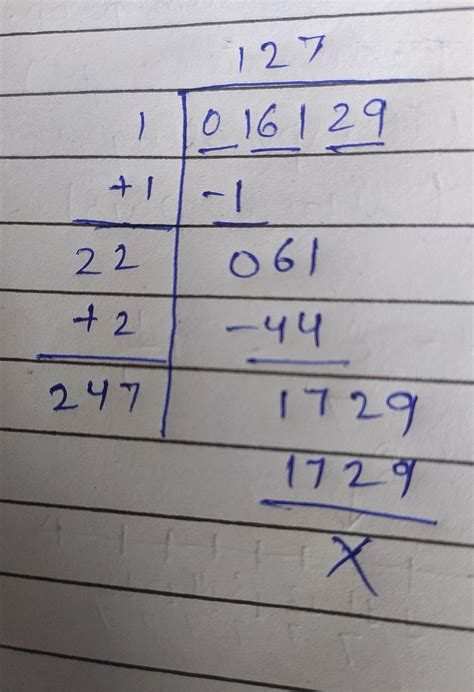 127
1 016129
+1 -1
22 061
+2 -44
247 1729
1729
X